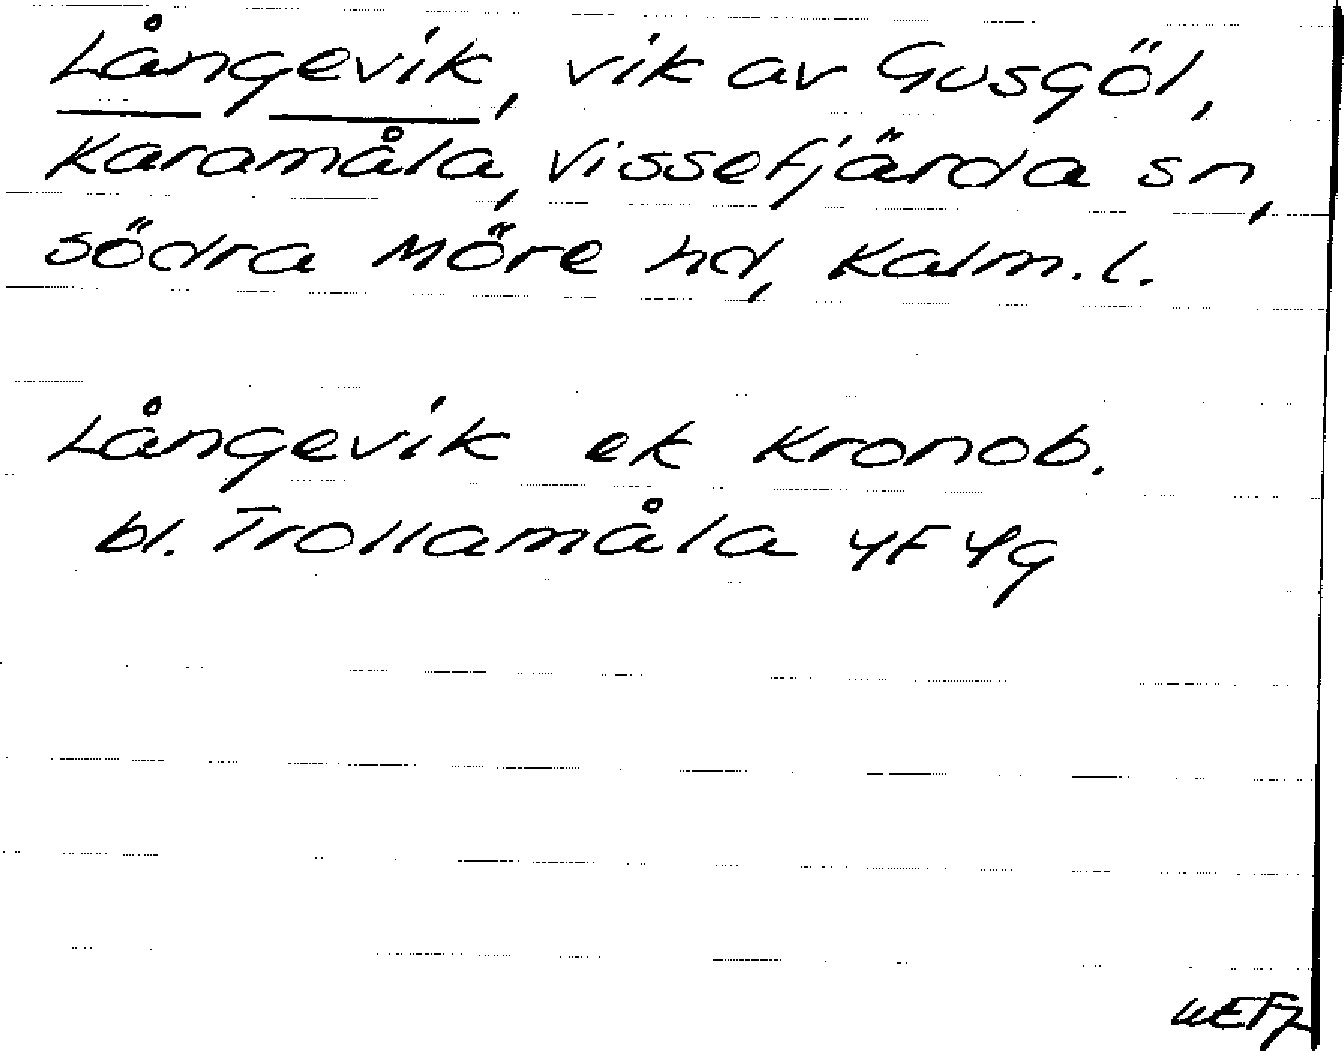 Långevik, vik av Gusgöl,
Karamåla, Vissefjärda sn,
södra Möre hd, Kalm. l.
Långevik ek Kronob.
bl. Trollamåla 4F 4g